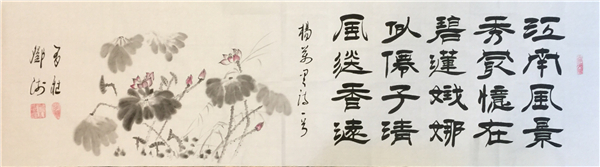 江南風景
秀最憶在
碧蓮婀娜
似僊子清
風送香遠
楊萬里詩一首